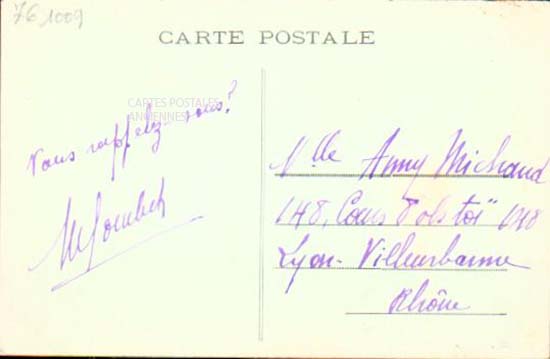 76 1009
CARTE POSTALE
CARTES POSTALES
ANCIENNES
Vous rappelez-vous?
Mlle Anny Michaud
148, Cours Tolstoï 148
Lyon-Villeurbanne
Rhône